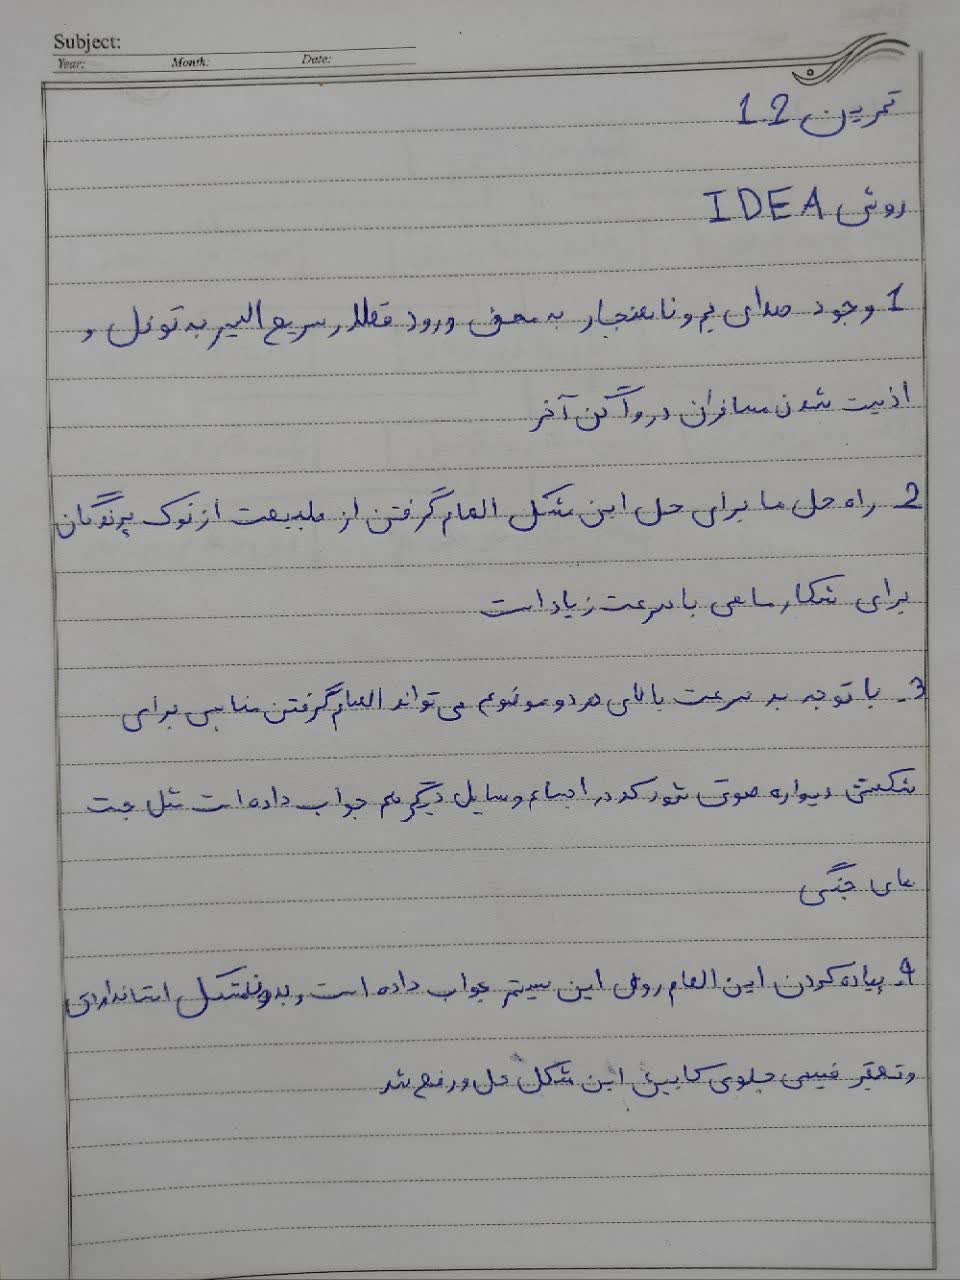 Subject:
Year: Month: Date:
تمرین 1.2
روش IDEA
1 وجود صدای بم و نا هنجار به محض ورود قطار سریع السیر به تونل و
اذیت شدن مسافران در واگن آخر
2. راه حل ما برای حل این مشکل الهام گرفتن از طبیعت از نوک پرندگان
برای شکار ماهی با سرعت زیاد است
3. با توجه به سرعت بالای هر دو موضوع می تواند الهام گرفتن مناسبی برای
شکستن دیواره صوتی شود که در وسایل دیگر هم جواب داده است مثل جت
های جنگی
4. پیاده کردن این الهام روی این سیستم جواب داده است و
و تغییر جلوی کابین این مشکل حل و رفع شد